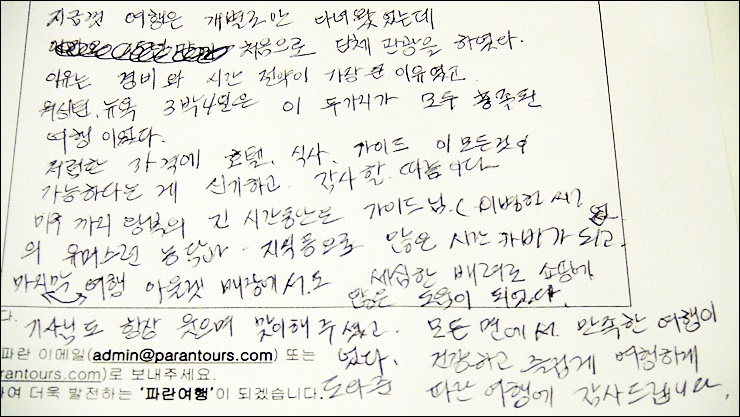 지금껏 여행은 개별로만 다녀왔었는데
처음으로 단체 관광을 하였다.
이유는 경비와 시간 절약이 가장 큰 이유였고
워싱턴, 뉴욕 3박4일은 이 두가지가 모두 충족된
여행이었다.
저렴한 가격에 호텔, 식사, 가이드 이 모든것이
가능하다는 게 신기하고 감사할 따름이다
긴 시간동안은 가이드님 (이병헌 씨?)
의 유머스런 농담과 지식등으로 많은 시간 카바가 되고
마지막 여행 아울렛 매장에서도 세심한 배려로 쇼핑에
많은 도움이 되었다.
다. 기사님도 항상 웃으며 맞이해 주셨고. 모든 면에서 만족한 여행이
파란 이메일(admin@parantours.com) 또는 었다. 건강하고 즐겁게 여행하게
rantours.com)로 보내주세요.
하여 더욱 발전하는 '파란여행'이 되겠습니다. 도와준 파란 여행에 감사드립니다.